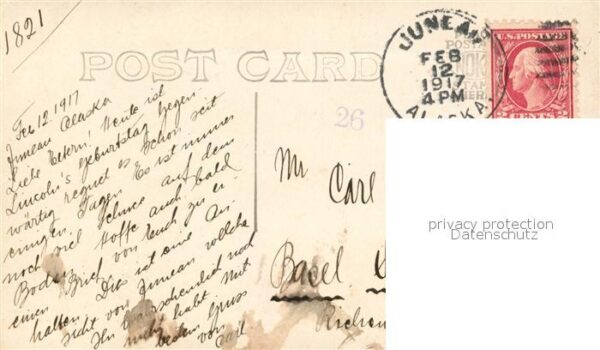 1821
POST CARD
JUNEAU
FEB
12
1917
4 PM
ALASKA.
U.S. POSTAGE
2 CENTS 2
26
Feb 12. 1917
Juneau Alaska
Liebe Eltern! Heute ist
Lincoln's geburtstag. Gegen
wärtig regnet es schon seit
einigen Tagen. Es ist immer
noch viel Schnee auf dem
Boden. Hoffe auch bald
einen Brief von Euch zu er
halten. Dies ist eine An
sicht von Juneau welche
Ihr wahrscheinlich noch
nicht habt. Mit
besten Gruss
von Carl
Mr. Carl
Basel
Richen
privacy protection
Datenschutz